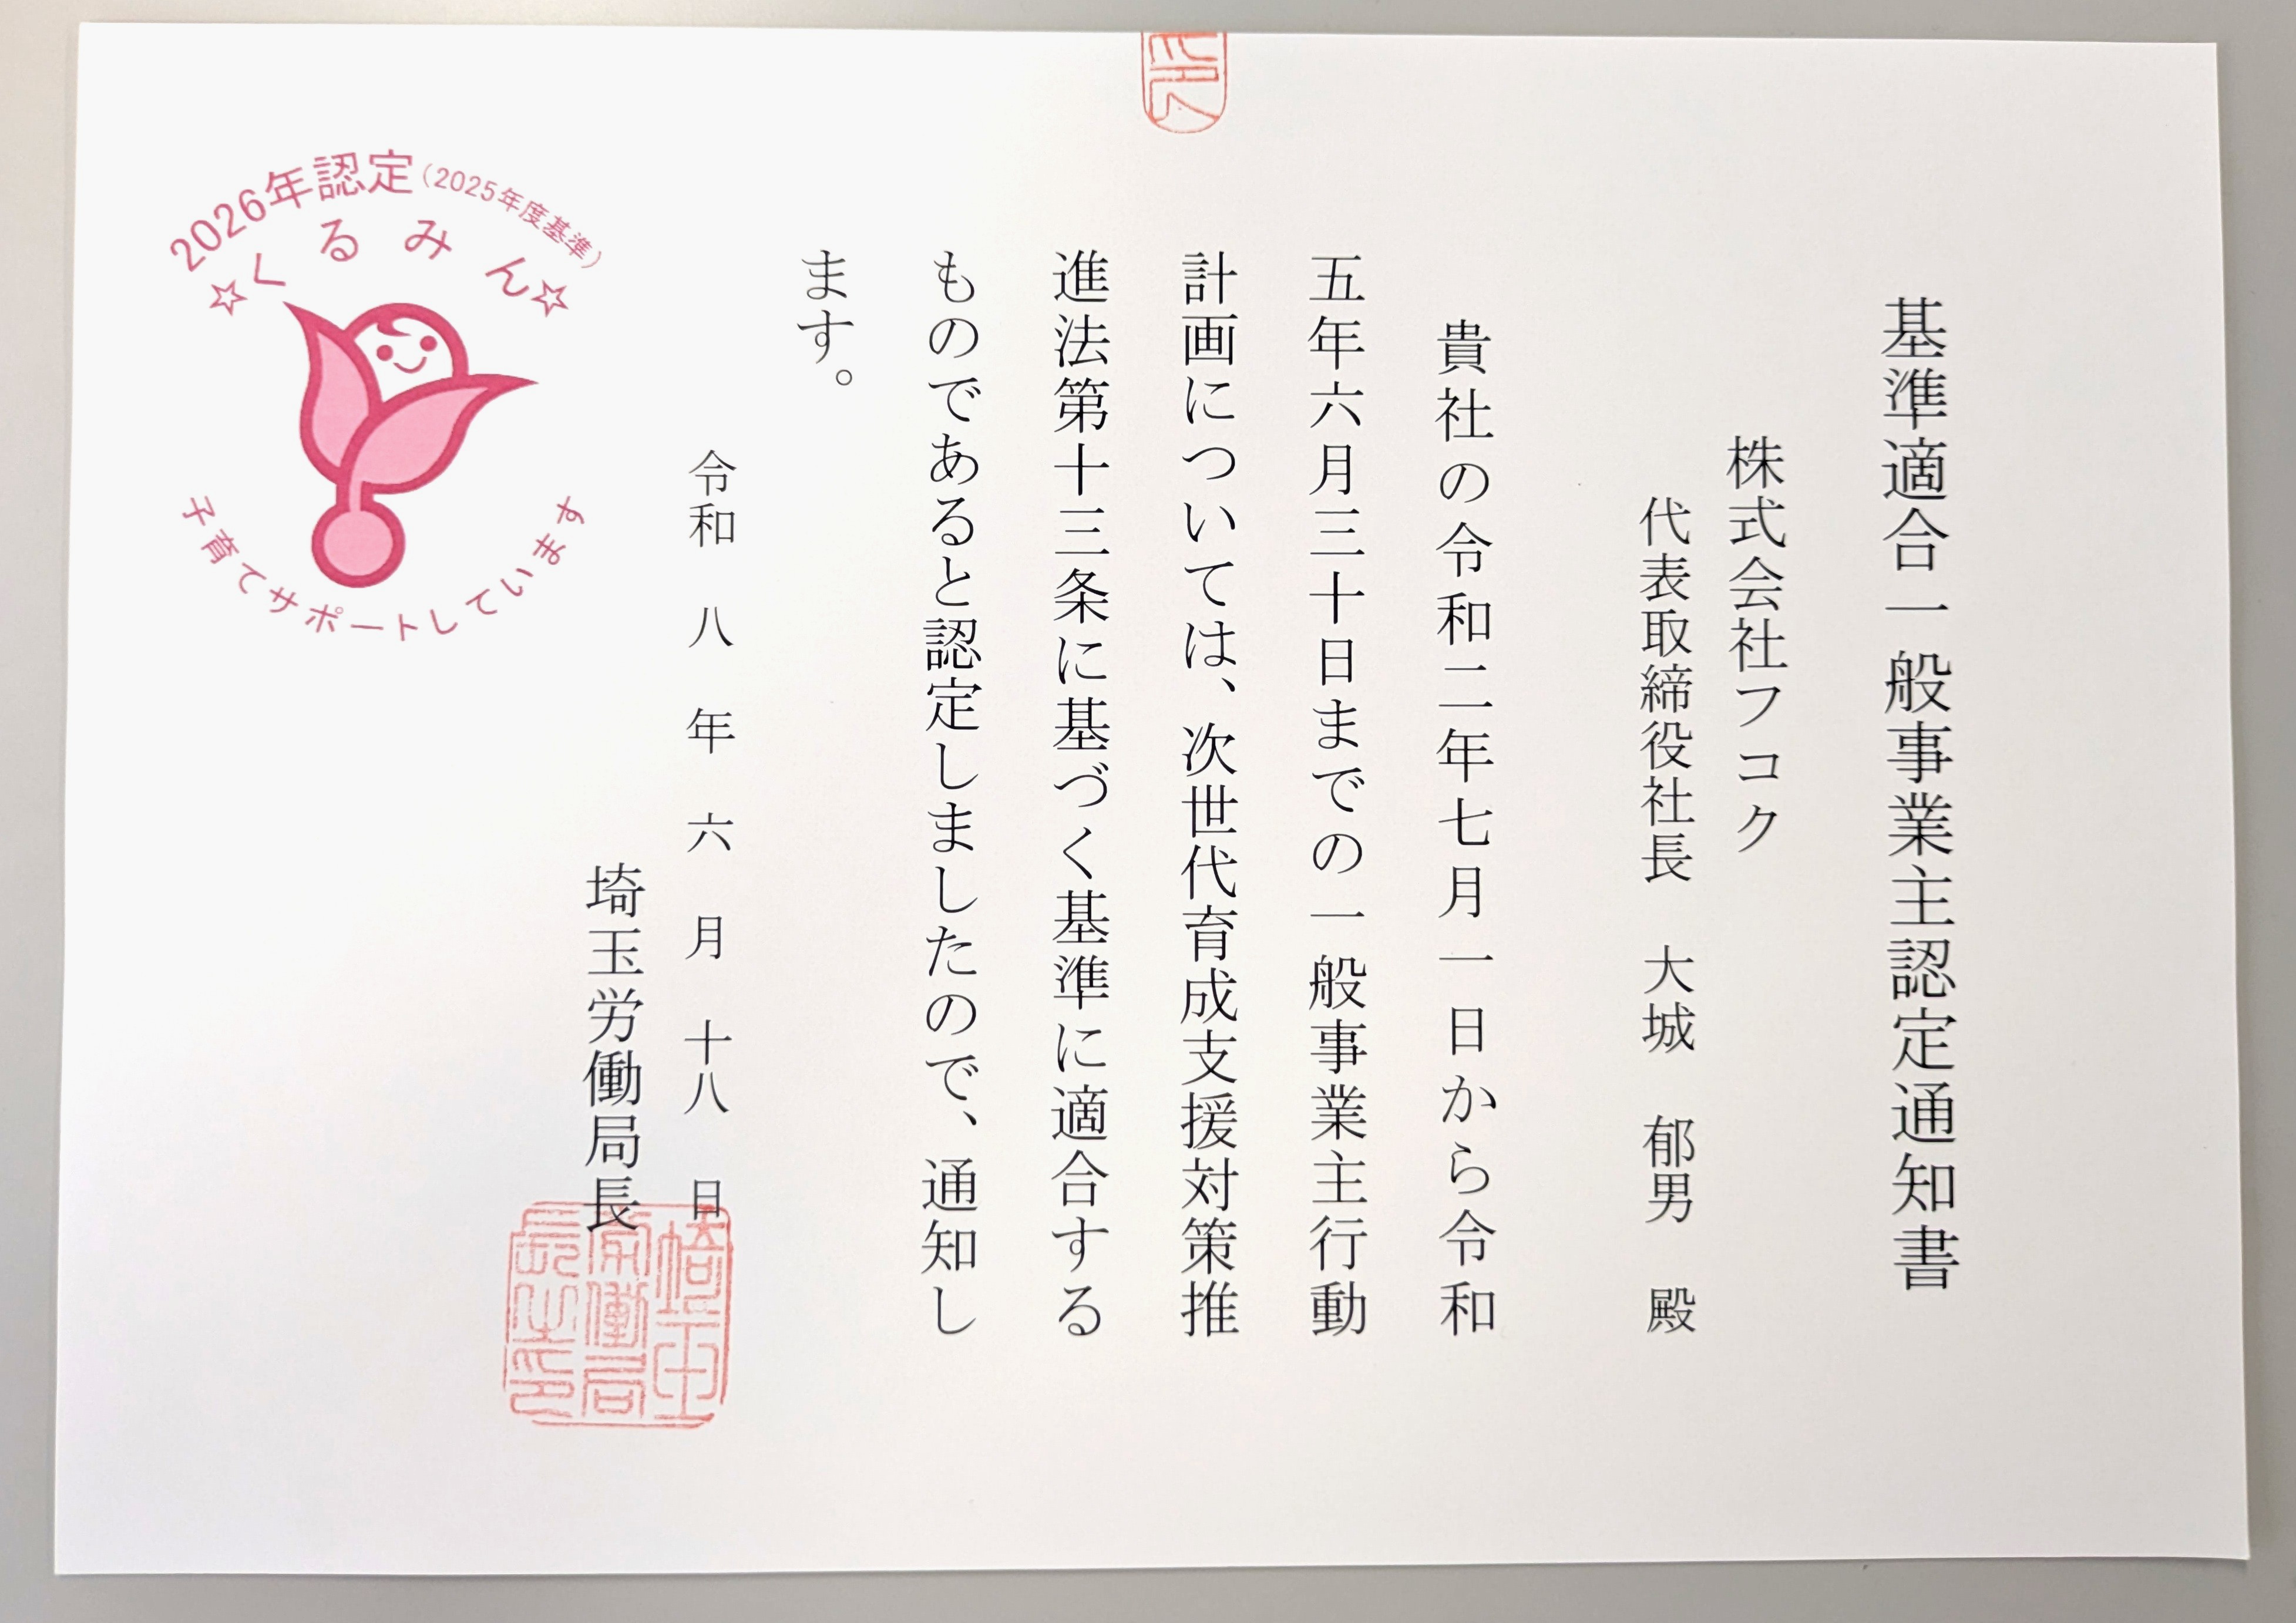 基準適合一般事業主認定通知書
株式会社フコク
代表取締役社長 大城 郁男 殿
貴社の令和二年七月一日から令和
五年六月三十日までの一般事業主行動
計画については、次世代育成支援対策推
進法第十三条に基づく基準に適合する
ものであると認定しましたので、通知し
ます。
令和 八 年 六 月 十八 日
埼玉労働局長
埼玉労働局長之印
印
2026年認定(2025年度基準)
☆くるみん☆
子育てサポートしています